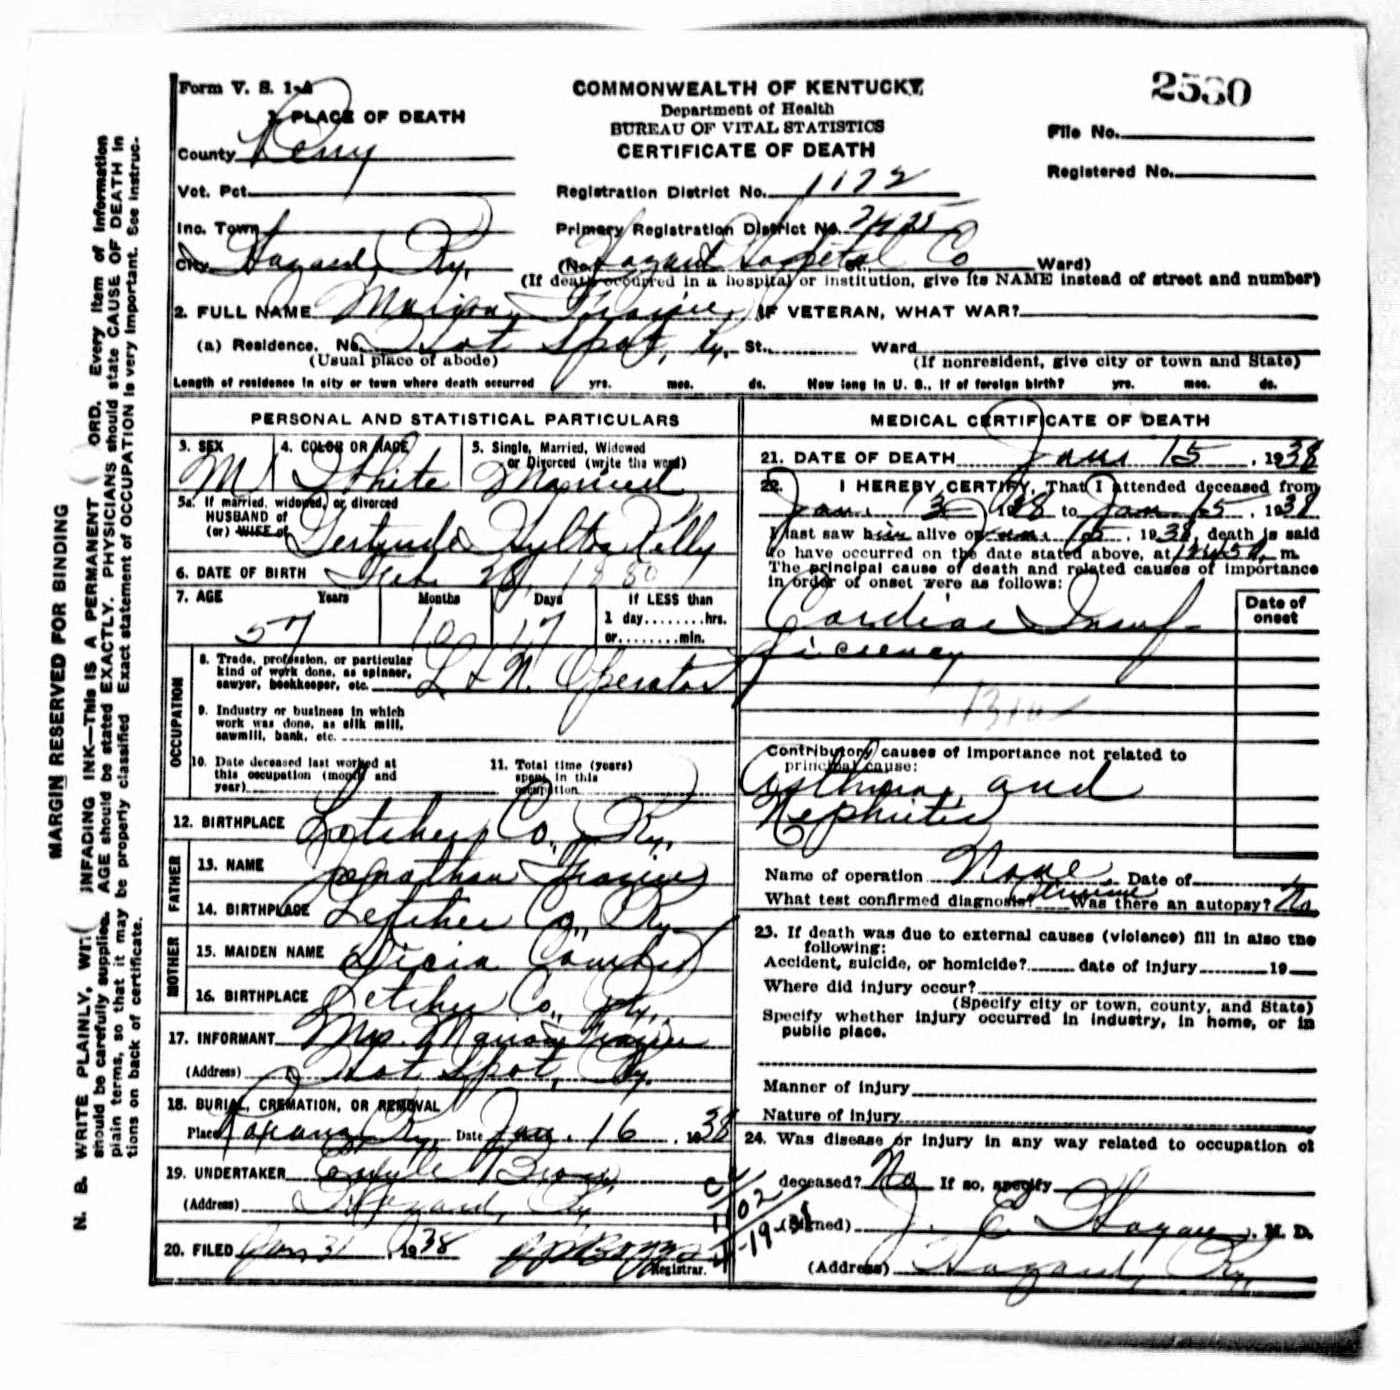 2530
Form V. S. 1-A
COMMONWEALTH OF KENTUCKY
Department of Health
BUREAU OF VITAL STATISTICS
CERTIFICATE OF DEATH
File No.
Registered No.
1. PLACE OF DEATH
County Perry
Vot. Pct.
Registration District No. 1172
Inc. Town
Primary Registration District No.
City Hazard, Ky.
(No. Hazard Hospital Co St. Ward)
(If death occurred in a hospital or institution, give its NAME instead of street and number)
2. FULL NAME Marion Frazier IF VETERAN, WHAT WAR?
(a) Residence. No. Hot Spot, Ky. St., Ward
(Usual place of abode) (If nonresident, give city or town and State)
Length of residence in city or town where death occurred yrs. mos. ds. How long in U. S., if of foreign birth? yrs. mos. ds.
PERSONAL AND STATISTICAL PARTICULARS
3. SEX M
4. COLOR OR RACE White
5. Single, Married, Widowed
or Divorced (write the word)
Married
5a. If married, widowed, or divorced
HUSBAND of
(or) WIFE of Gertrude Kelly
6. DATE OF BIRTH Feb. 28, 1880
7. AGE Years Months Days If LESS than
57 10 17 1 day........hrs.
or........min.
OCCUPATION
8. Trade, profession, or particular
kind of work done, as spinner,
sawyer, bookkeeper, etc. L & N. Operator
9. Industry or business in which
work was done, as silk mill,
sawmill, bank, etc.
10. Date deceased last worked at
this occupation (month and
year)
11. Total time (years)
spent in this
occupation
12. BIRTHPLACE Letcher Co., Ky.
FATHER
13. NAME Jonathan Frazier
14. BIRTHPLACE Letcher Co., Ky.
MOTHER
15. MAIDEN NAME Dicia
16. BIRTHPLACE Letcher Co., Ky.
17. INFORMANT Mrs. Marion Frazier
(Address) Hot Spot, Ky.
18. BURIAL, CREMATION, OR REMOVAL
Place Roxana, Ky. Date Jan. 16, 1938
19. UNDERTAKER
(Address) Hazard, Ky.
20. FILED Jan 31, 1938
Registrar.
MEDICAL CERTIFICATE OF DEATH
21. DATE OF DEATH Jan 15, 1938
22. I HEREBY CERTIFY, That I attended deceased from
Jan. 13, 1938 to Jan 15, 1938
I last saw him alive on Jan. 15, 1938, death is said
to have occurred on the date stated above, at m.
The principal cause of death and related causes of importance
in order of onset were as follows:
Date of
onset
Cardiac Insuf-
ficiency
Contributory causes of importance not related to
principal cause:
Asthma and
Nephritis
Name of operation None Date of
What test confirmed diagnosis? Urine Was there an autopsy? No
23. If death was due to external causes (violence) fill in also the
following:
Accident, suicide, or homicide? date of injury 19
Where did injury occur?
(Specify city or town, county, and State)
Specify whether injury occurred in industry, in home, or in
public place.
Manner of injury
Nature of injury
24. Was disease or injury in any way related to occupation of
deceased? No If so, specify
(Signed) J. E. Hagan, M. D.
(Address) Hazard, Ky.
MARGIN RESERVED FOR BINDING
N. B. WRITE PLAINLY, WITH UNFADING INK—This IS A PERMANENT RECORD. Every item of information
should be carefully supplied. AGE should be stated EXACTLY. PHYSICIANS should state CAUSE OF DEATH in
plain terms, so that it may be properly classified. Exact statement of OCCUPATION is very important. See instruc-
tions on back of certificate.